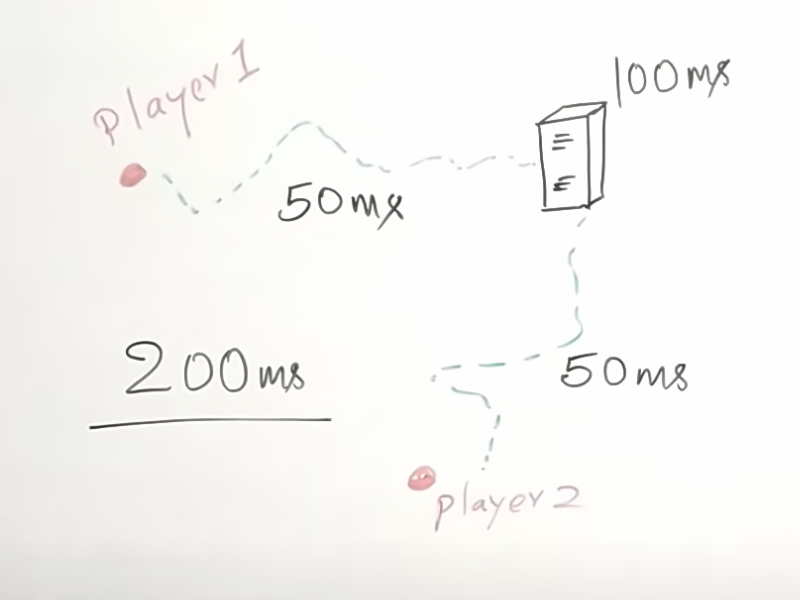 Player 1
100ms
50ms
200ms
50ms
player 2